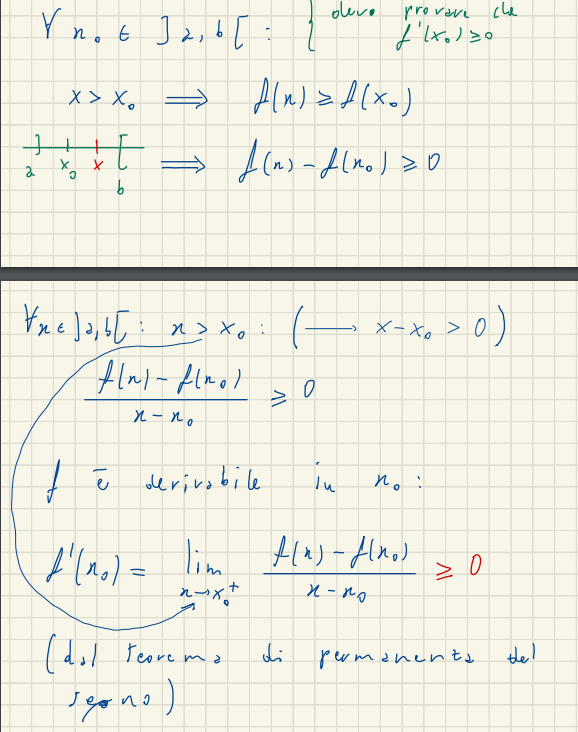 ∀ x₀ ∈ ]a,b[ : { devo provare che
f'(x₀) ≥ 0
x > x₀ ⟹ f(x) ≥ f(x₀)
] x₀ x [ ⟹ f(x) - f(x₀) ≥ 0
a b
∀x ∈ ]a,b[ : x > x₀ : ( ⟶ x-x₀ > 0 )
f(x) - f(x₀) / x - x₀ ≥ 0
f è derivabile in x₀ :
f'(x₀) = lim x→x₀⁺ f(x) - f(x₀) / x - x₀ ≥ 0
(dal teorema di permanenza del
segno)